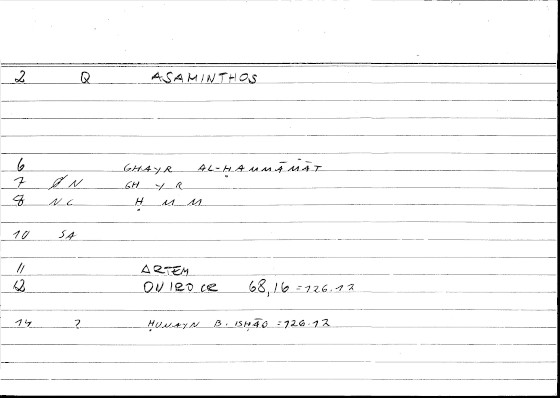 2 Q ASAMINTHOS
6 GHAYR AL-ḤAMMĀMĀT
7 ØN GH Y R
8 NC Ḥ M M
10 SA
11 ARTEM
12 ONIROCR 68,16 = 126.12
14 ? ḤUNAYN B. ISḤĀQ = 126.12